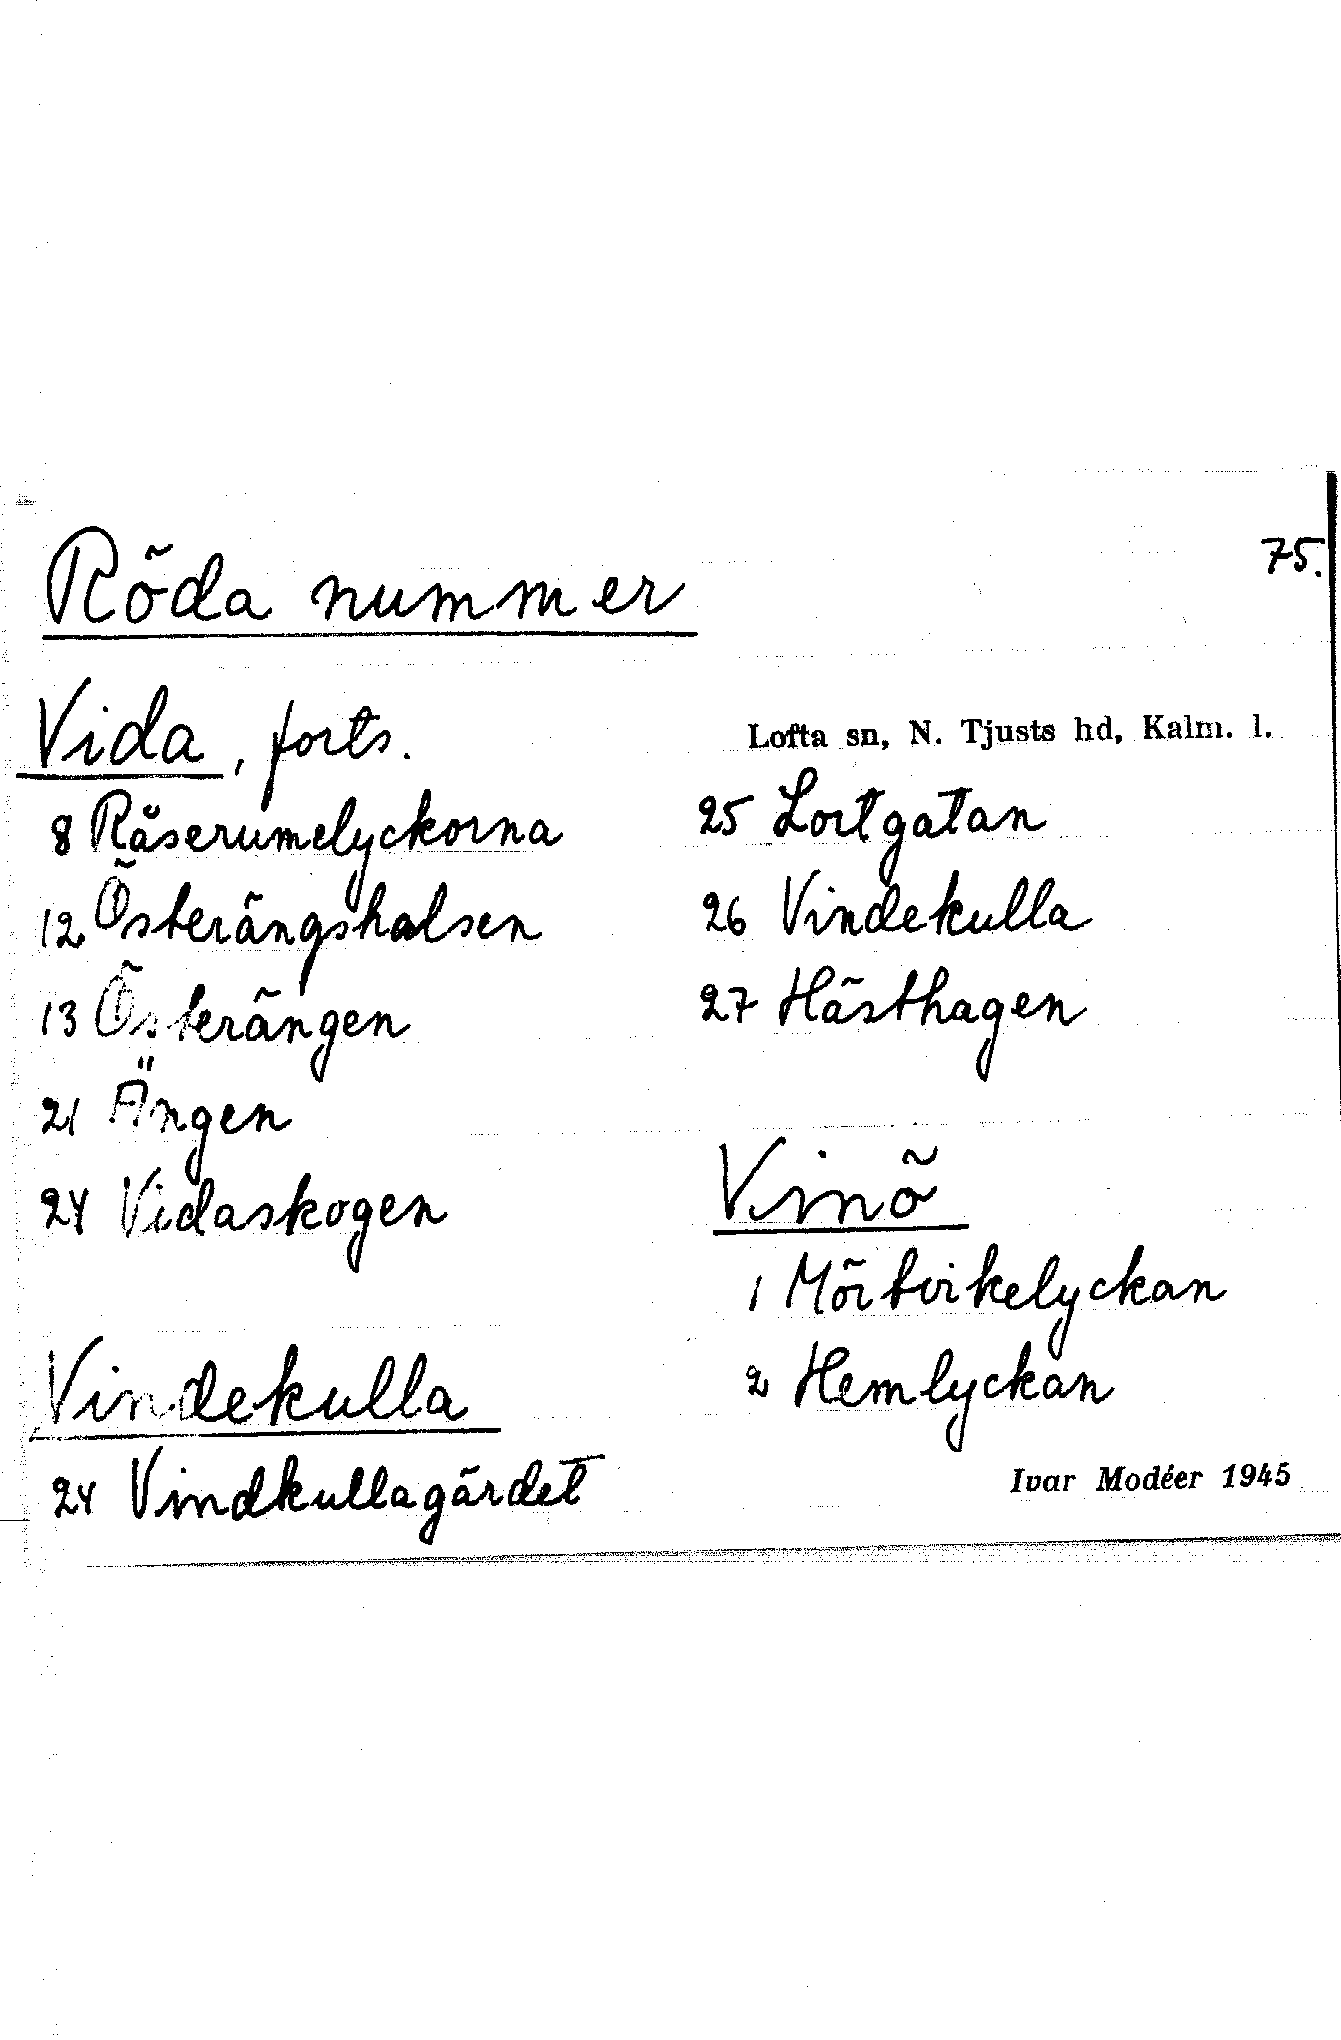 75.
Röda nummer
Vida, forts.
8 Räserumelyckorna
12 Österängshalsen
13 Österängen
21 Ängen
24 Vidaskogen
Vindekulla
24 Vindkullagärdet
Lofta sn, N. Tjusts hd, Kalm. l.
25 Lortgatan
26 Vindekulla
27 Hästhagen
Vinö
1 Mörtvikelyckan
2 Hemlyckan
Ivar Modéer 1945